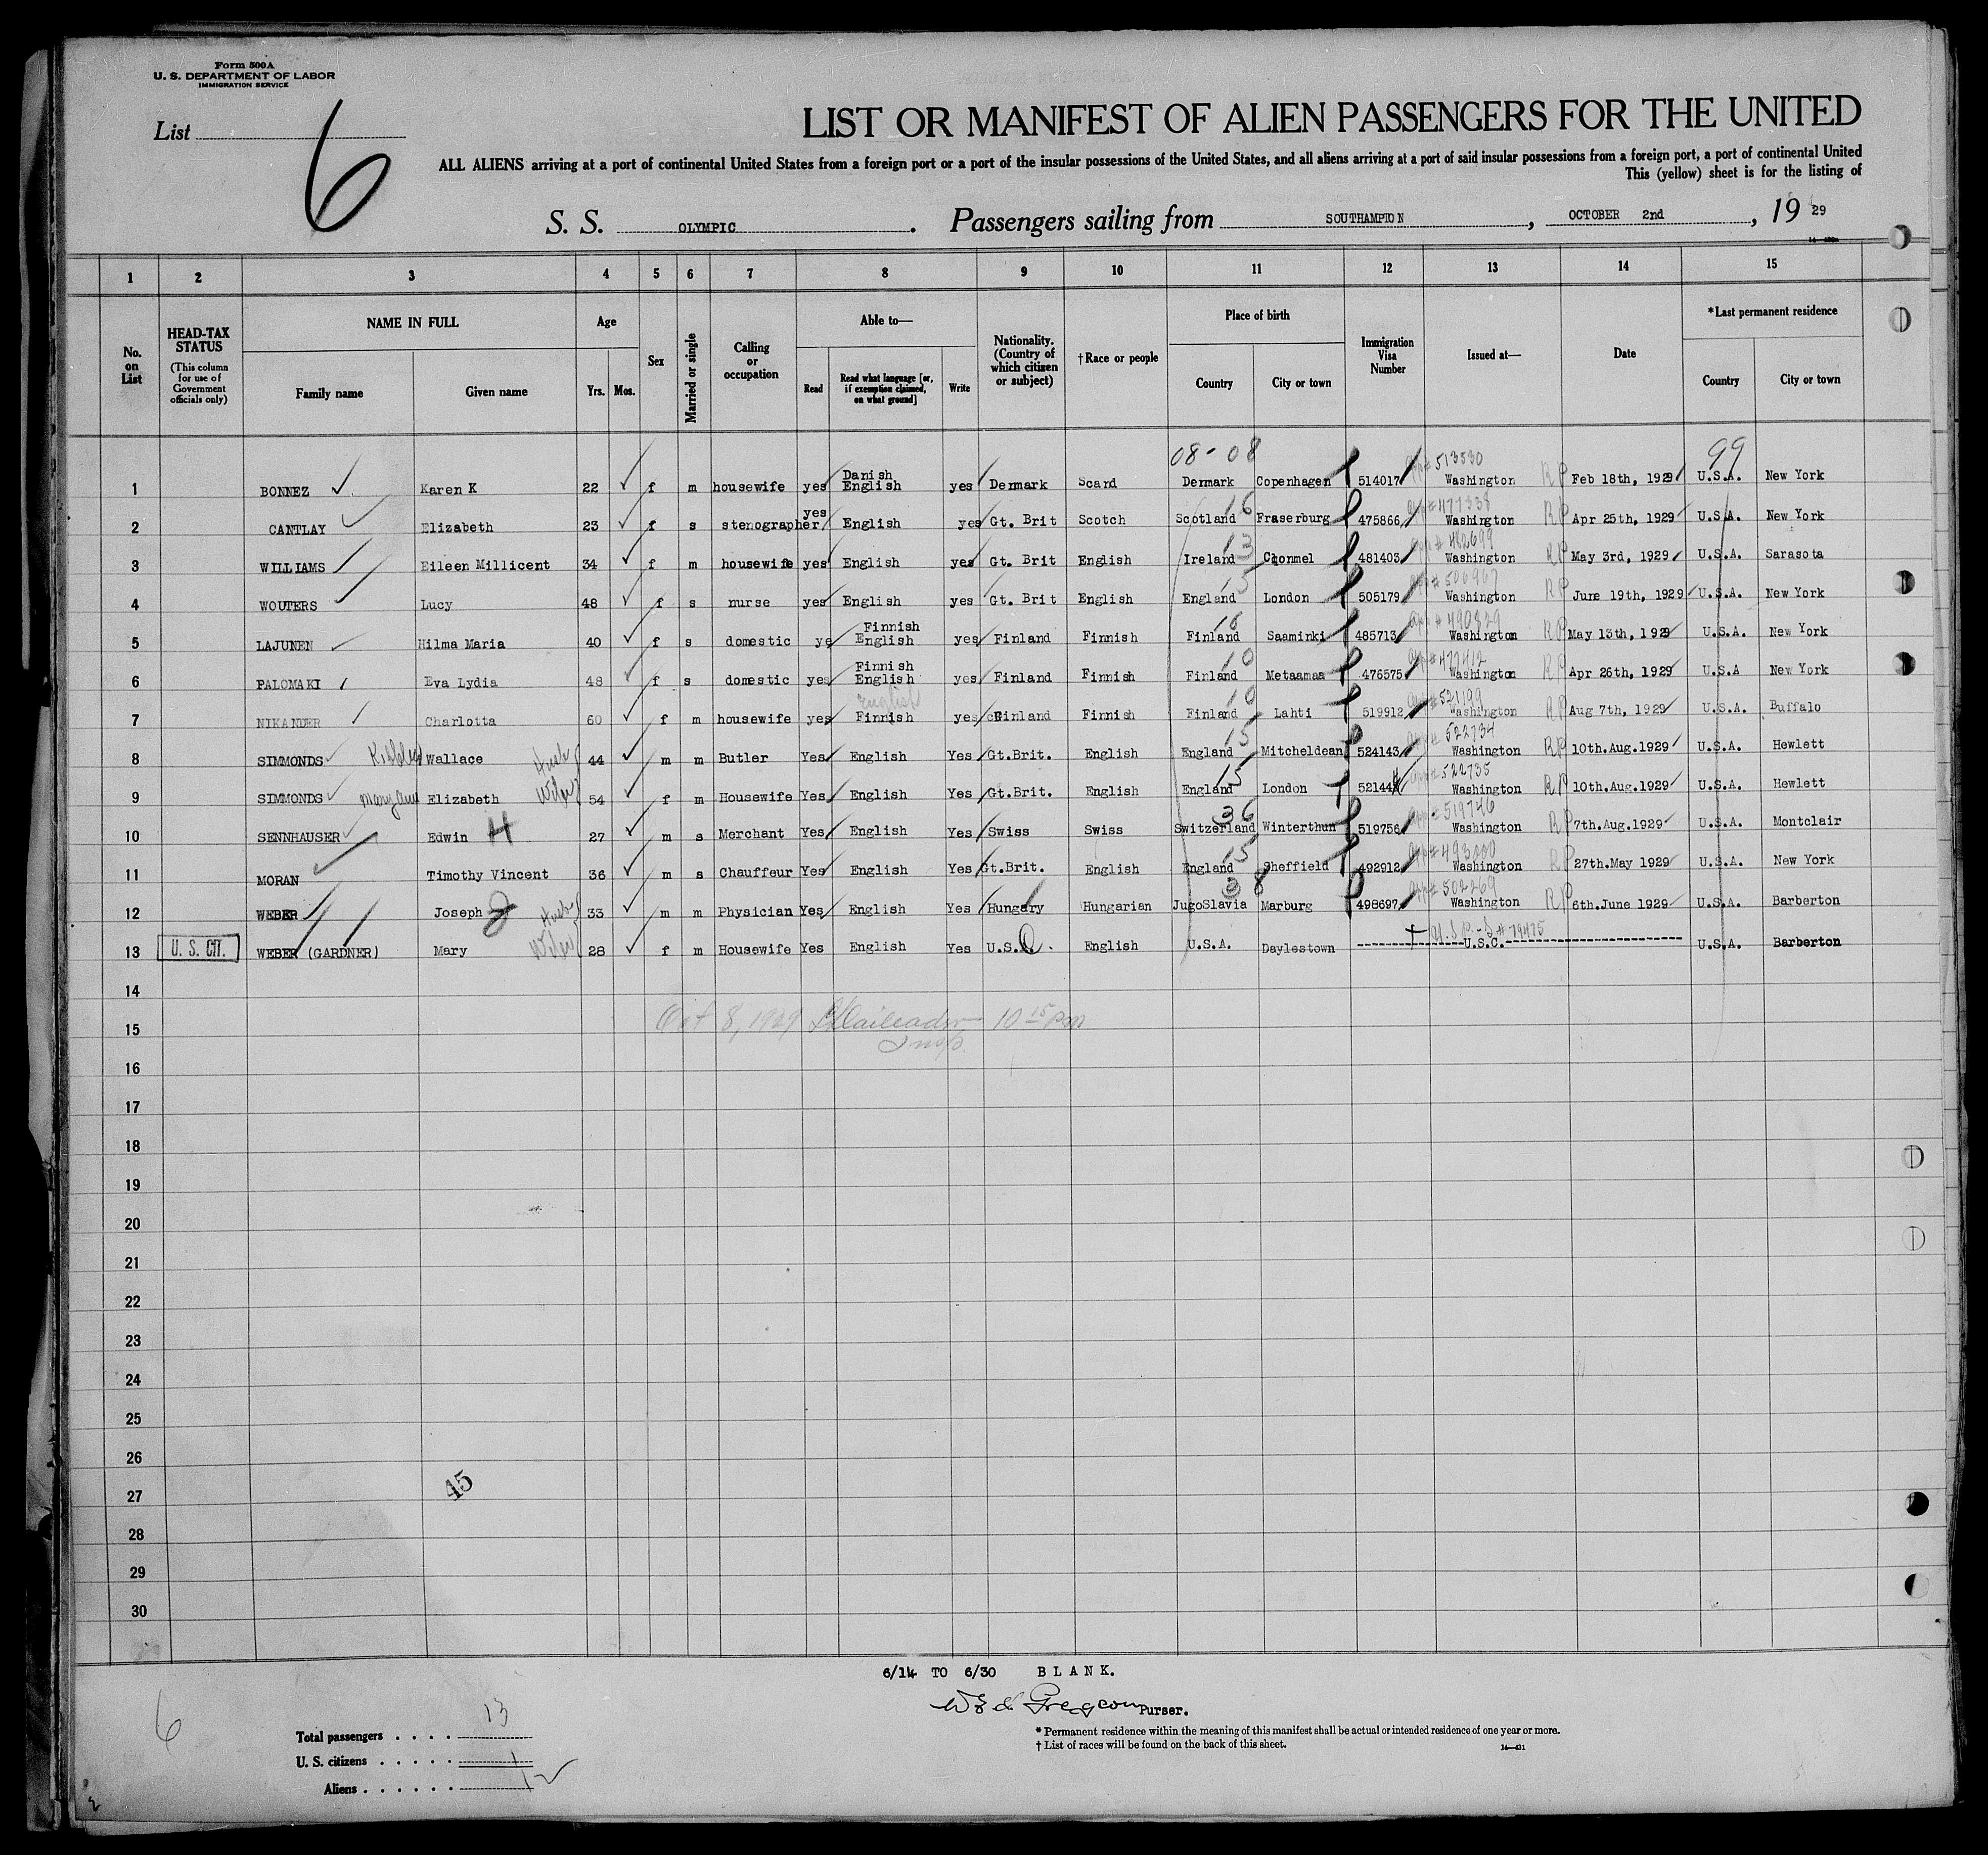 Form 500A
U. S. DEPARTMENT OF LABOR
IMMIGRATION SERVICE
List 6
LIST OR MANIFEST OF ALIEN PASSENGERS FOR THE UNITED
ALL ALIENS arriving at a port of continental United States from a foreign port or a port of the insular possessions of the United States, and all aliens arriving at a port of said insular possessions from a foreign port, a port of continental United
This (yellow) sheet is for the listing of
S. S. OLYMPIC . Passengers sailing from SOUTHAMPTON , OCTOBER 2nd , 19 29
1 2 3 4 5 6 7 8 9 10 11 12 13 14 15
No. on List
HEAD-TAX STATUS
(This column for use of Government officials only)
NAME IN FULL
Family name
Given name
Age
Yrs. Mos.
Sex
Married or single
Calling or occupation
Able to—
Read
Read what language [or, if exemption claimed, on what ground]
Write
Nationality. (Country of which citizen or subject)
†Race or people
Place of birth
Country
City or town
Immigration Visa Number
Issued at—
Date
*Last permanent residence
Country
City or town
08-08 99
1 BONNEZ Karen K 22 f m housewife yes Danish English yes Denmark Scand Denmark Copenhagen 514017 513530 Washington RP Feb 18th, 1929 U.S.A. New York
2 CANTLAY Elizabeth 23 f s stenographer yes English yes Gt. Brit Scotch Scotland 16 Fraserburg 475866 477338 Washington RP Apr 25th, 1929 U.S.A. New York
3 WILLIAMS Eileen Millicent 34 f m housewife yes English yes Gt. Brit English Ireland 13 Clonmel 481403 482699 Washington RP May 3rd, 1929 U.S.A. Sarasota
4 WOUTERS Lucy 48 f s nurse yes English yes Gt. Brit English England 15 London 505179 506967 Washington RP June 19th, 1929 U.S.A. New York
5 LAJUNEN Hilma Maria 40 f s domestic ye Finnish English yes Finland Finnish Finland 10 Saaminki 485713 490829 Washington RP May 13th, 1929 U.S.A. New York
6 PALOMAKI Eva Lydia 48 f s domestic yes Finnish English yes Finland Finnish Finland 10 Metaamaa 476575 477412 Washington RP Apr 26th, 1929 U.S.A New York
7 NIKANDER Charlotta 60 f m housewife yes English Finnish yes Finland Finnish Finland 10 Lahti 519912 521199 Washington RP Aug 7th, 1929 U.S.A. Buffalo
8 SIMMONDS Wallace Husb 44 m m Butler Yes English Yes Gt.Brit. English England 15 Mitcheldean 524143 522734 Washington RP 10th.Aug.1929 U.S.A. Hewlett
9 SIMMONDS Mary Ann Elizabeth Wife 54 f m Housewife Yes English Yes Gt.Brit. English England 15 London 52144 522735 Washington RP 10th.Aug.1929 U.S.A. Hewlett
10 SENNHAUSER Edwin H 27 m s Merchant Yes English Yes Swiss Swiss Switzerland 36 Winterthun 519756 519746 Washington RP 7th.Aug.1929 U.S.A. Montclair
11 MORAN Timothy Vincent 36 m s Chauffeur Yes English Yes Gt.Brit. English England 15 Sheffield 492912 493000 Washington RP 27th.May 1929 U.S.A. New York
12 WEBER Joseph J Husb 33 m m Physician Yes English Yes Hungary Hungarian JugoSlavia 38 Marburg 498697 502269 Washington RP 6th.June 1929 U.S.A. Barberton
13 U. S. CIT. WEBER (GARDNER) Mary Wife 28 f m Housewife Yes English Yes U.S.A. English U.S.A. Daylestown U.S.C. U.S.A. Barberton
14
Oct 8, 1929 10 15 pm
15
Insp.
16
17
18
19
20
21
22
23
24
25
26
45
27
28
29
30
6/14 TO 6/30 B L A N K.
Purser.
6
Total passengers . . . . 13
U. S. citizens . . . . . 1
Aliens . . . . . . 12
* Permanent residence within the meaning of this manifest shall be actual or intended residence of one year or more.
† List of races will be found on the back of this sheet.
14—431